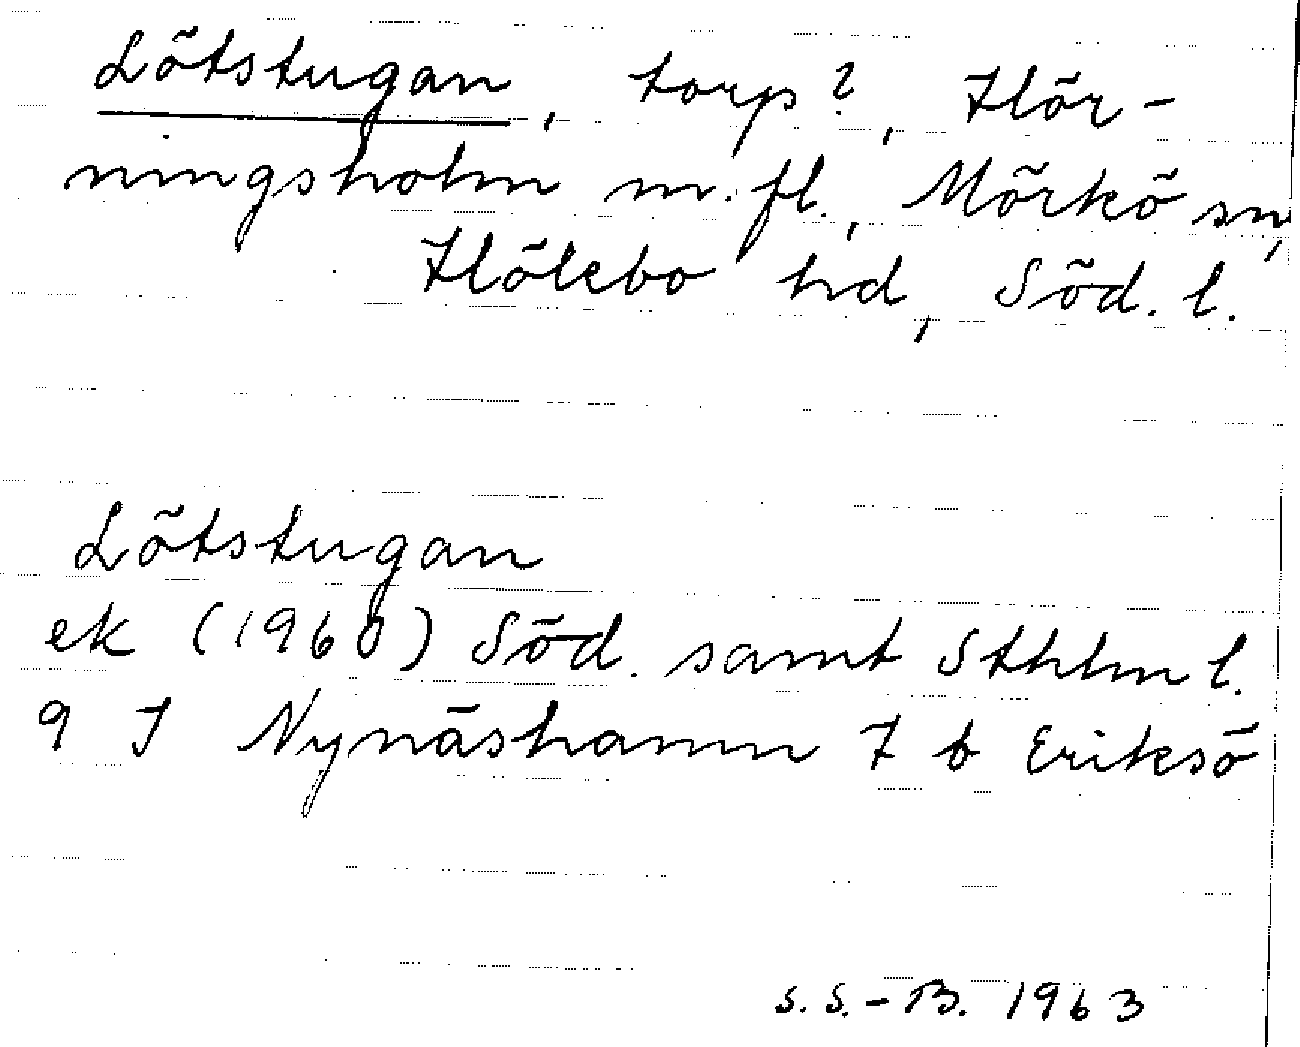 Lötstugan, torp?, Hör-
ningsholm m.fl., Mörkö sn,
Hölebo hd, Söd. l.
Lötstugan
ek (1960) Söd. samt Sthlm l.
9 I Nynäshamn 7 b Eriksö
S.S.-B. 1963